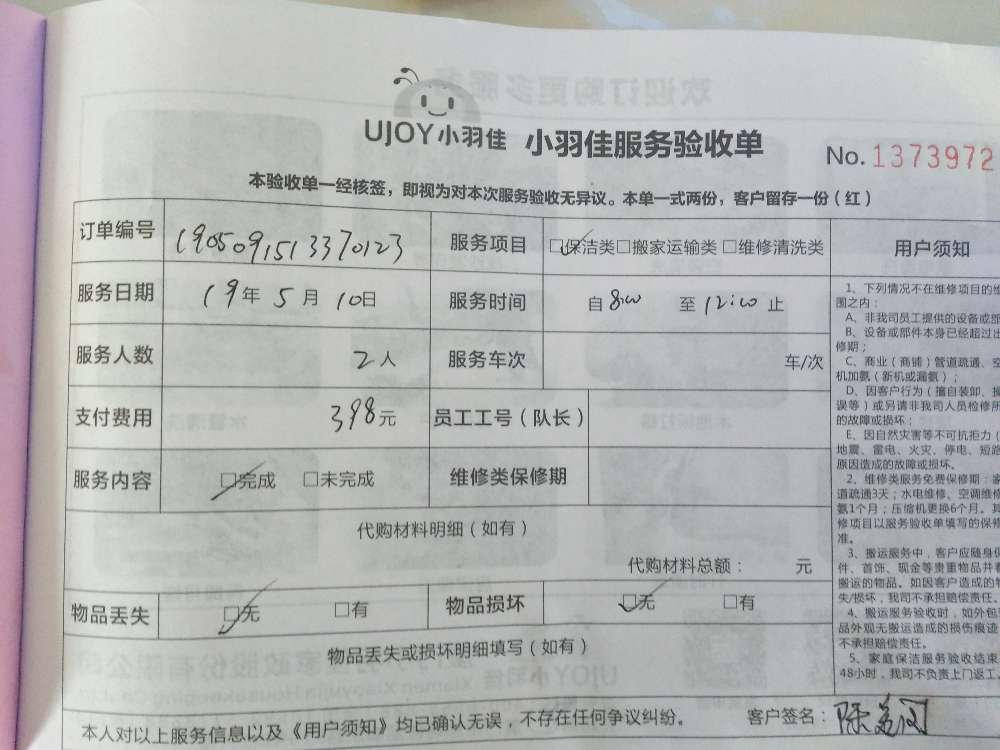 UJOY小羽佳 小羽佳服务验收单
No. 1373972
本验收单一经核签，即视为对本次服务验收无异议。本单一式两份，客户留存一份（红）
订单编号 1905091513370123 服务项目 ☑保洁类□搬家运输类□维修清洗类
服务日期 19年5月10日 服务时间 自8:00 至12:00止
服务人数 2人 服务车次 车/次
支付费用 398元 员工工号（队长）
服务内容 ☑完成 □未完成 维修类保修期
代购材料明细（如有）
代购材料总额： 元
物品丢失 ☑无 □有 物品损坏 ☑无 □有
物品丢失或损坏明细填写（如有）
本人对以上服务信息以及《用户须知》均已确认无误，不存在任何争议纠纷。 客户签名：
用户须知
1、下列情况不在维修项目的维
围之内：
A、非我司员工提供的设备或部
B、设备或部件本身已经超过出
修期；
C、商业（商铺）管道疏通、空
机加氨（新机或漏氨）；
D、因客户行为（擅自装卸、操
误等）或另请非我司人员检修所
的故障或损坏；
E、因自然灾害等不可抗拒力（
地震、雷电、火灾、停电、短路
原因造成的故障或损坏。
2、维修类服务免费保修期：家
道疏通3天；水电维修、空调维修
氨1个月；压缩机更换6个月。其
修项目以服务验收单填写的保修
准。
3、搬运服务中，客户应随身保
件、首饰、现金等贵重物品并看
搬运的物品。如因客户造成的物
失/损坏，我司不承担赔偿责任。
4、搬运服务验收时，如外包
品外观无搬运造成的损伤痕迹
不承担赔偿责任。
5、家庭保洁服务验收结束
48小时，我司不负责上门返工。